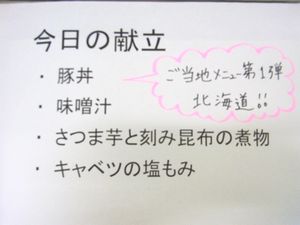 今日の献立
・豚丼
ご当地メニュー第1弾
北海道!!
・味噌汁
・さつま芋と刻み昆布の煮物
・キャベツの塩もみ